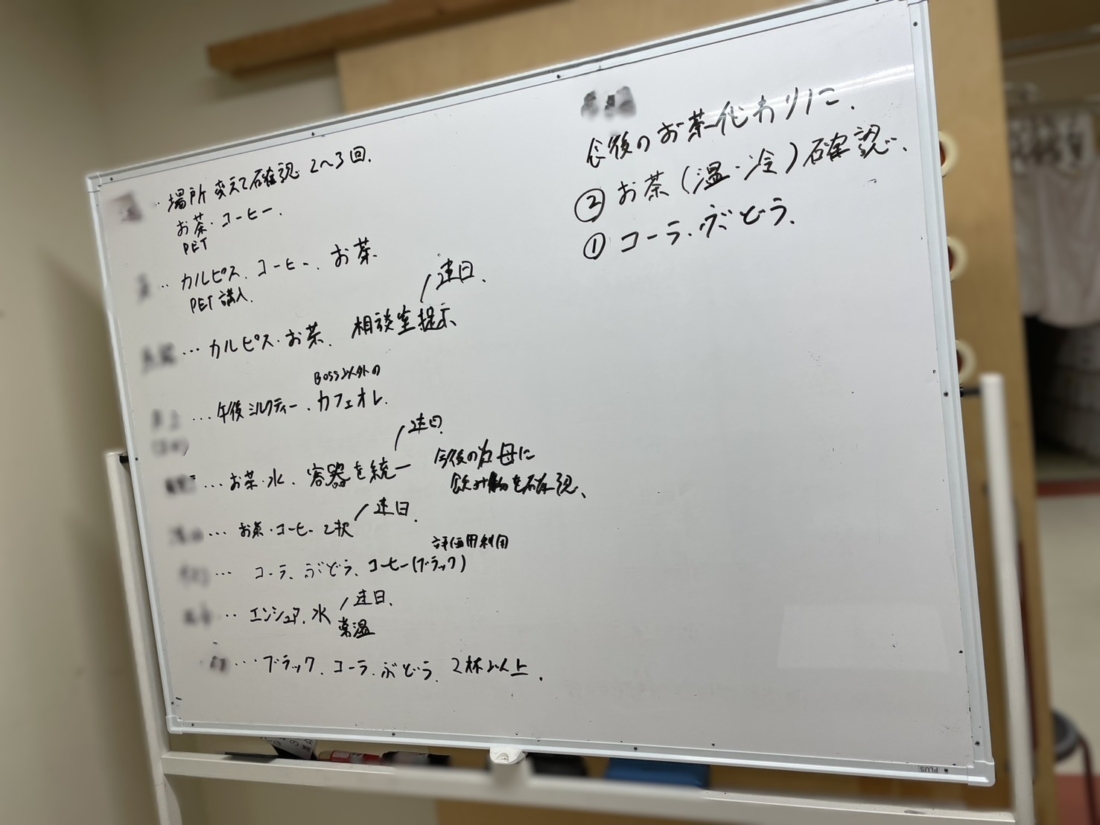 ‥場所 変えて確認 2〜3回.
お茶・コーヒー.
PET
‥カルピス、コーヒー、お茶
PET 購入.
/連日.
…カルピス・お茶. 相談室提示
BOSS以外の
…午後ミルクティー、カフェオレ.
/連日
…お茶・水、容器を統一
今後の為 母に
飲み物を確認、
/連日.
…お茶・コーヒー 2択
評価用利用
…コーラ、ぶどう、コーヒー(ブラック)
/連日.
…エンシュア、水
常温
…ブラック、コーラ、ぶどう、2杯以上.
後のお茶代わりに.
② お茶(温・冷)確認.
① コーラ、ぶどう.
PLUS